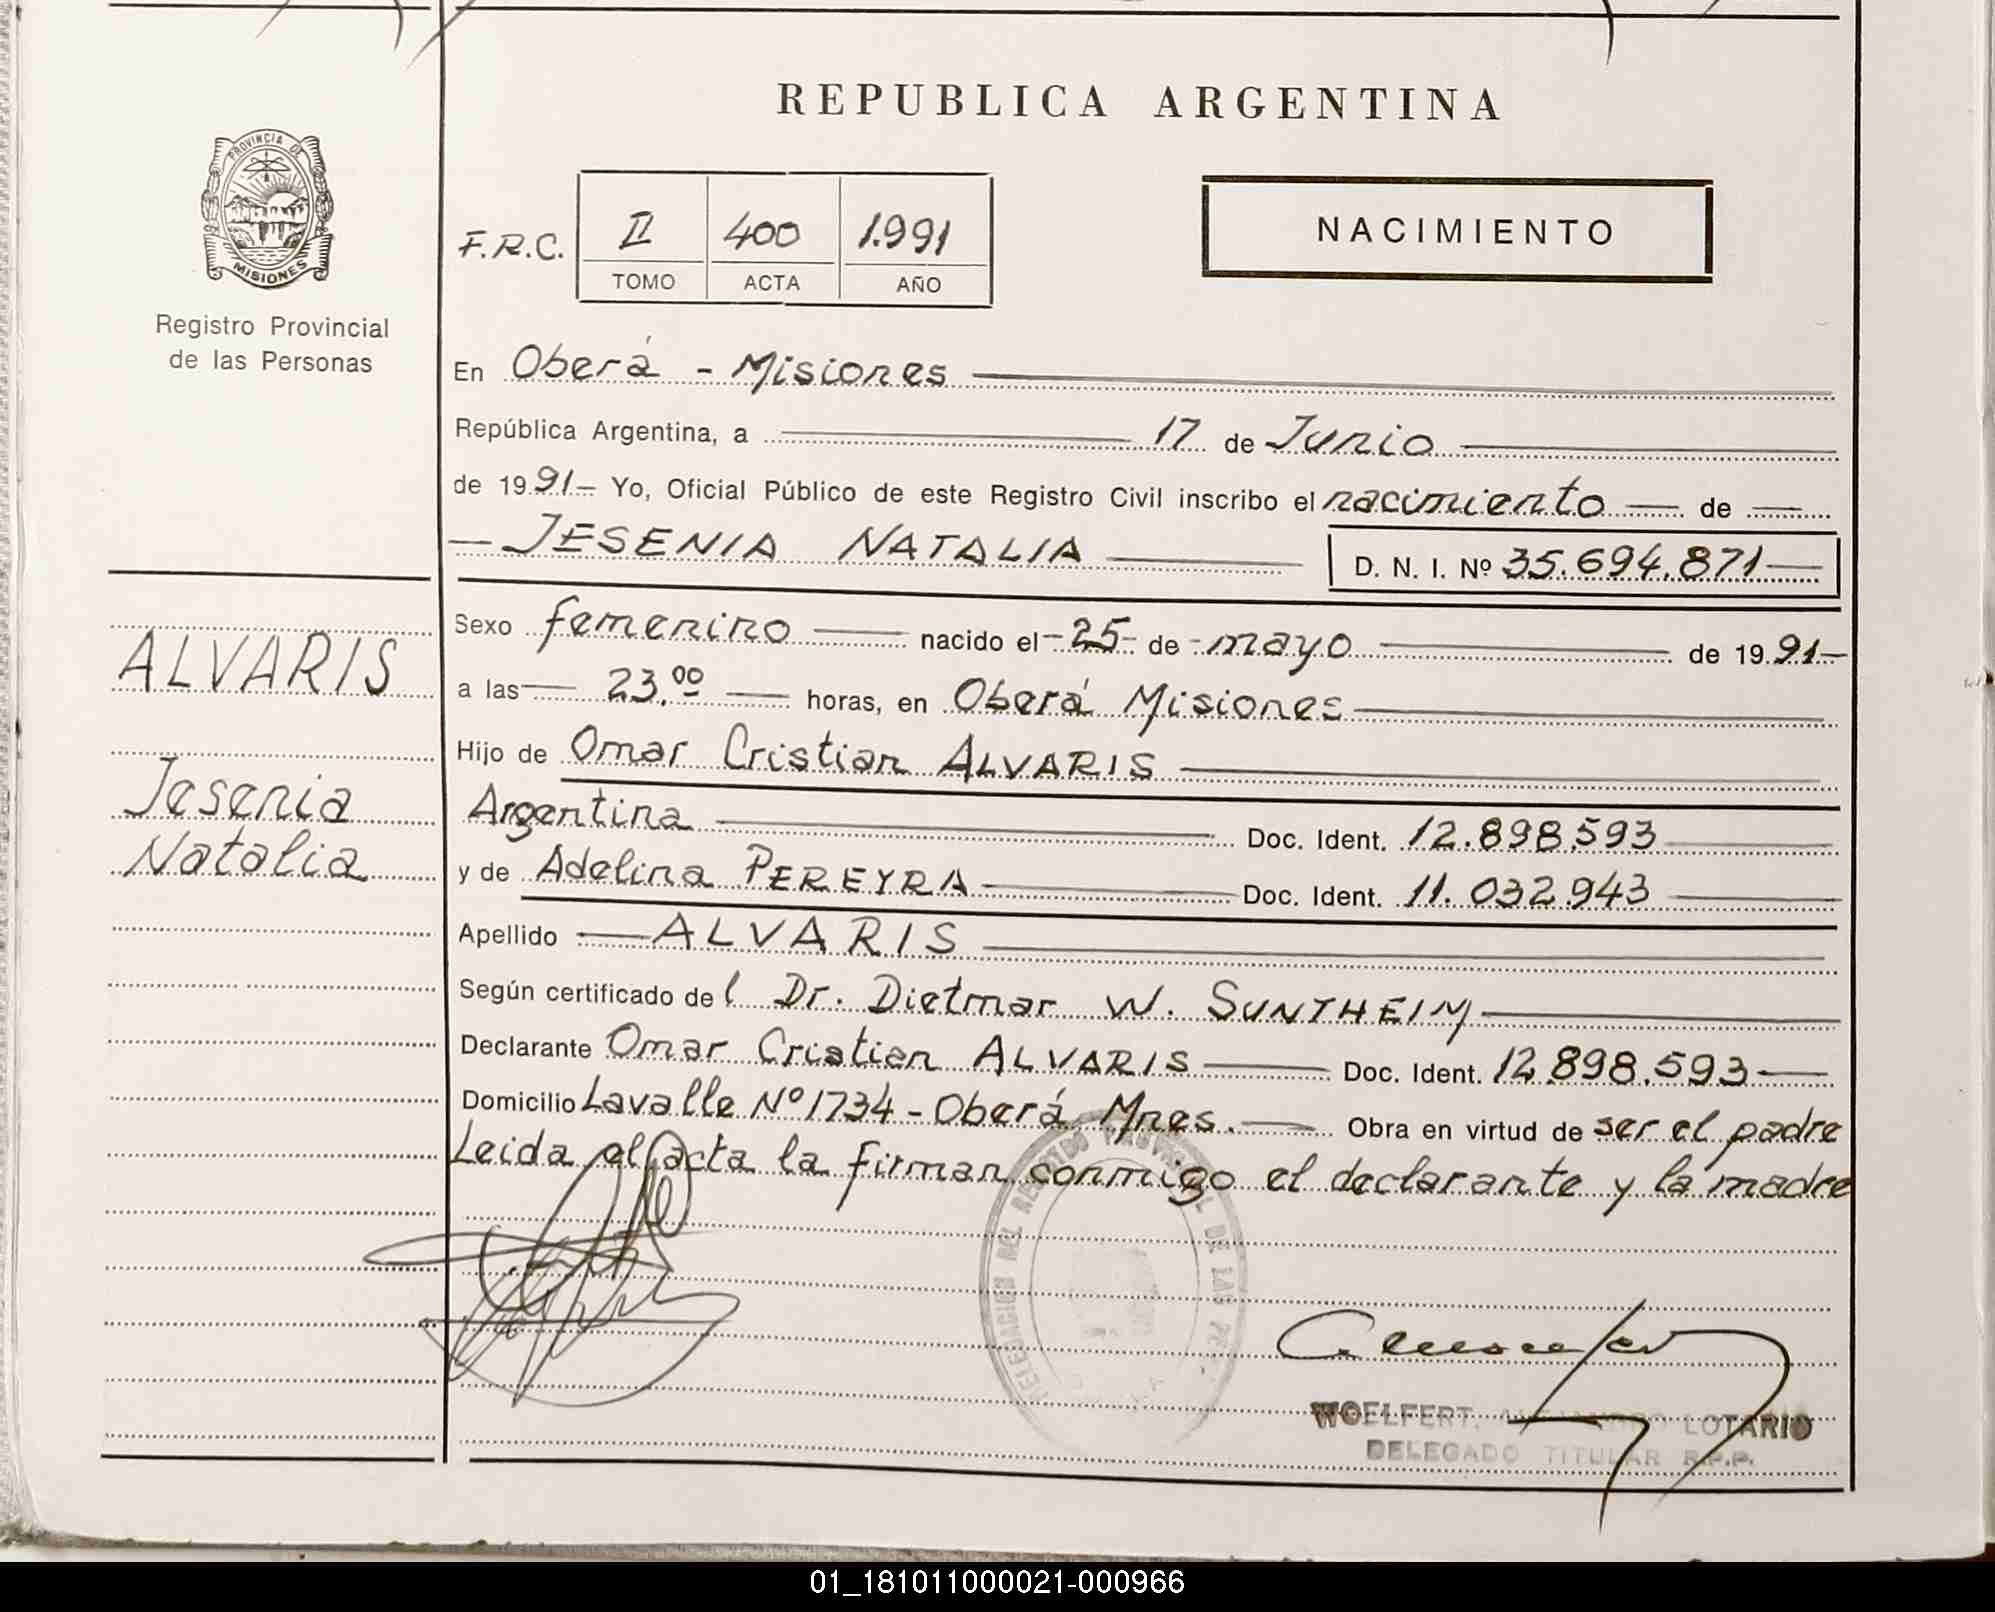 REPUBLICA ARGENTINA
PROVINCIA DE
MISIONES
Registro Provincial
de las Personas
F.R.C. II 400 1.991
TOMO ACTA AÑO
NACIMIENTO
En Oberá - Misiones
República Argentina, a 17 de Junio
de 1991- Yo, Oficial Público de este Registro Civil inscribo el nacimiento de
JESENIA NATALIA D. N. I. Nº 35.694.871
ALVARIS
Jesenia
Natalia
Sexo femenino nacido el -25- de - mayo de 1991-
a las 23,00 horas, en Oberá Misiones
Hijo de Omar Cristian ALVARIS
Argentina Doc. Ident. 12.898.593
y de Adelina PEREYRA Doc. Ident. 11.032.943
Apellido ALVARIS
Según certificado del Dr. Dietmar W. SUNTHEIM
Declarante Omar Cristian ALVARIS Doc. Ident. 12.898.593
Domicilio Lavalle Nº 1734 - Oberá Mnes. Obra en virtud de ser el padre
Leida el acta la firman conmigo el declarante y la madre
DELEGACION DEL REGISTRO PROVINCIAL DE LAS
WOELFERT, LOTARIO
DELEGADO TITULAR R.P.P.
01_181011000021-000966